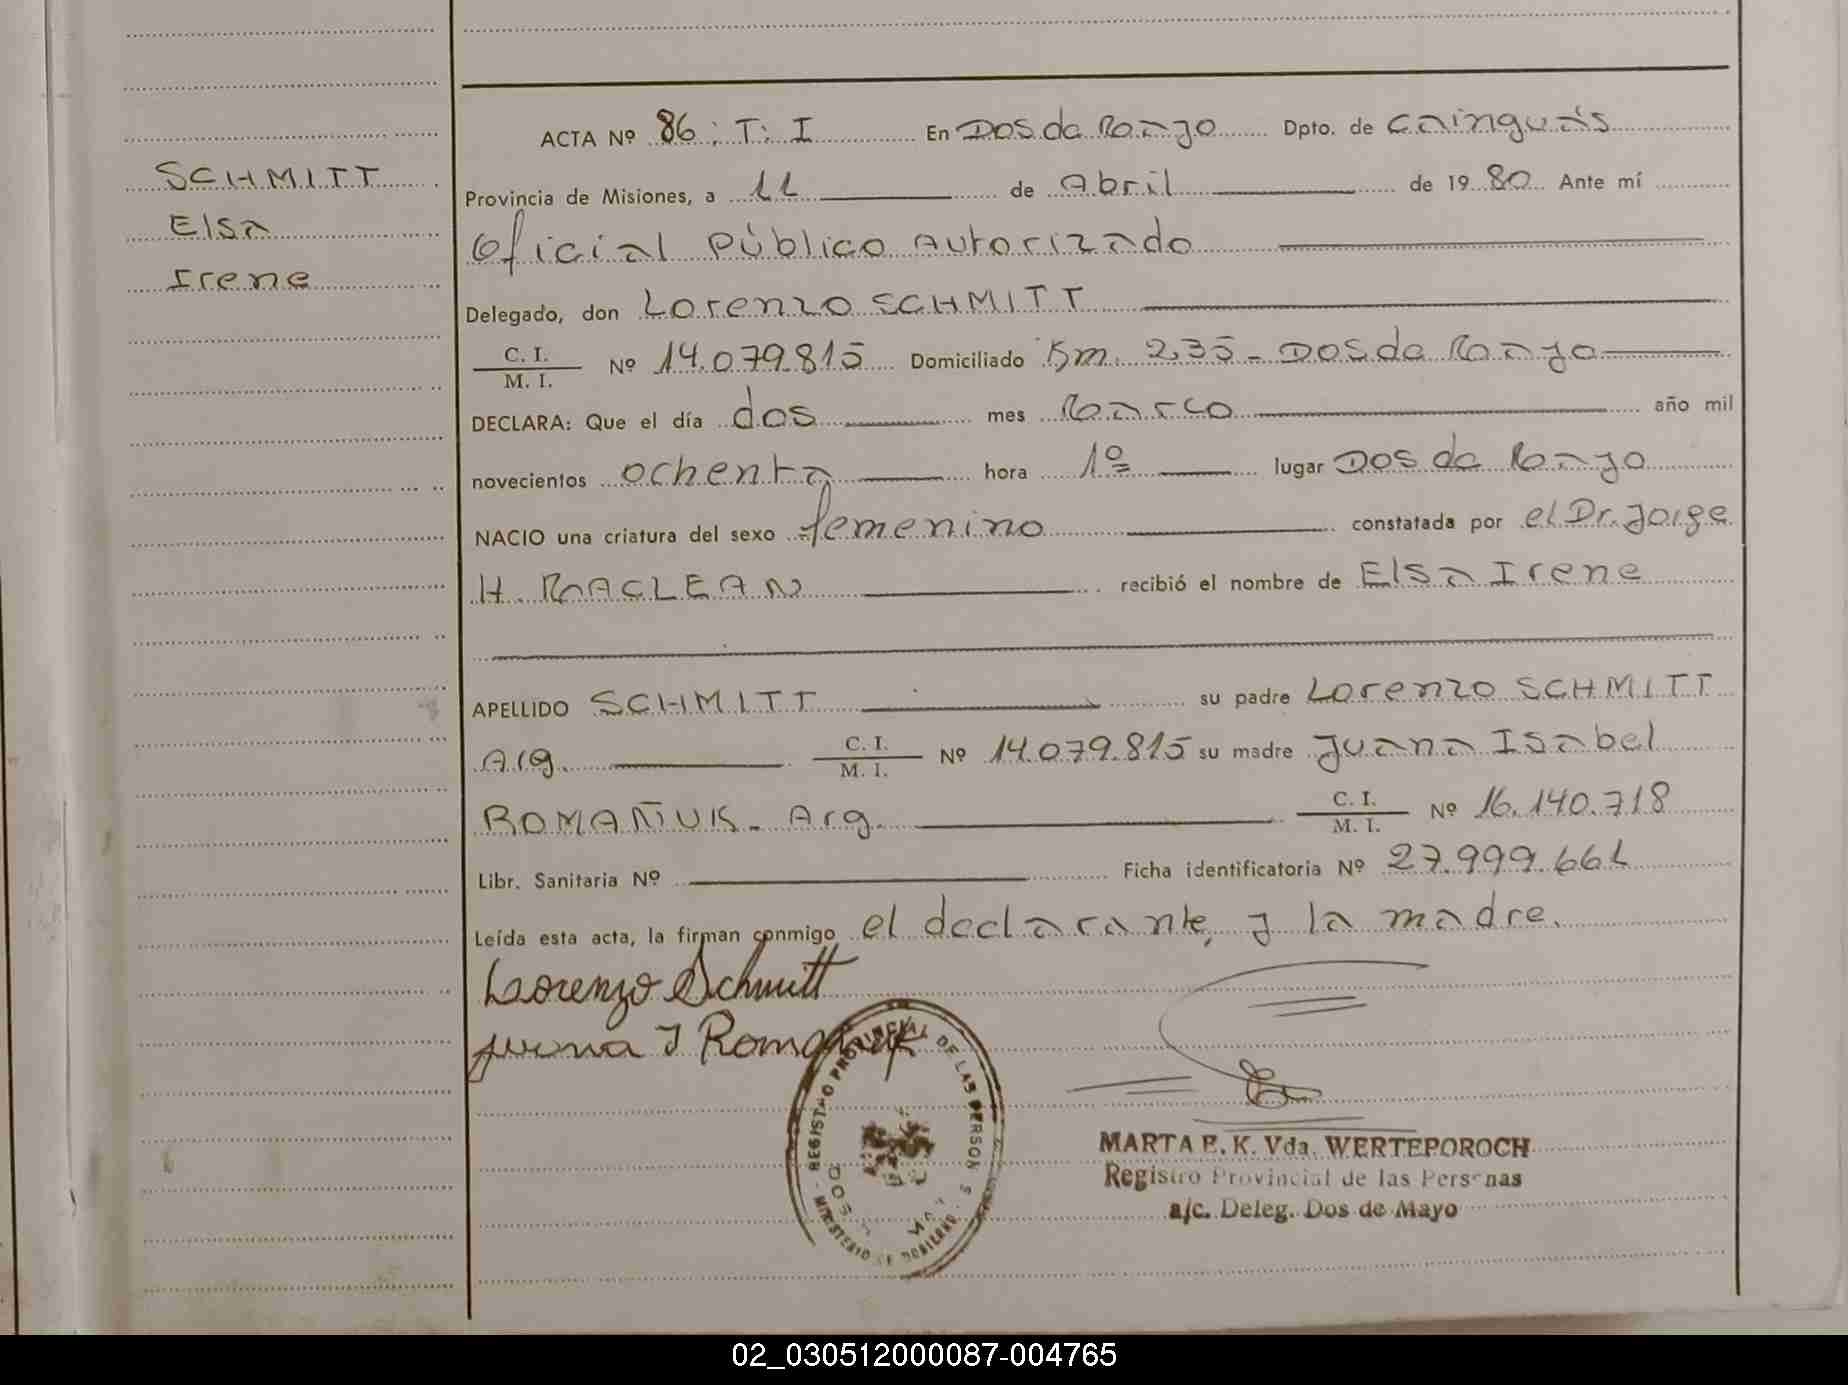 SCHMITT
Elsa
Irene
ACTA Nº 86; T: I En Dos de Mayo Dpto. de Cainguás
Provincia de Misiones, a 11 de Abril de 1980 Ante mí
Oficial Público Autorizado
Delegado, don Lorenzo SCHMITT
C. I. / M. I. Nº 14.079.815 Domiciliado Km. 235 - Dos de Mayo
DECLARA: Que el día dos mes Marzo año mil
novecientos ochenta hora 1º lugar Dos de Mayo
NACIO una criatura del sexo femenino constatada por el Dr. Jorge
H. MACLEAN recibió el nombre de Elsa Irene
APELLIDO SCHMITT su padre Lorenzo SCHMITT
Arg. C. I. / M. I. Nº 14.079.815 su madre Juana Isabel
ROMAÑUK - Arg. C. I. / M. I. Nº 16.140.718
Libr. Sanitaria Nº Ficha identificatoria Nº 27.999.661
Leída esta acta, la firman conmigo el declarante, y la madre.
Lorenzo Schmitt
Juana I Romañuk
REGISTRO PROVINCIAL DE LAS PERSONAS
MINISTERIO DE GOBIERNO
MARTA E. K. Vda. WERTEPOROCH
Registro Provincial de las Personas
a/c. Deleg. Dos de Mayo
02_030512000087-004765